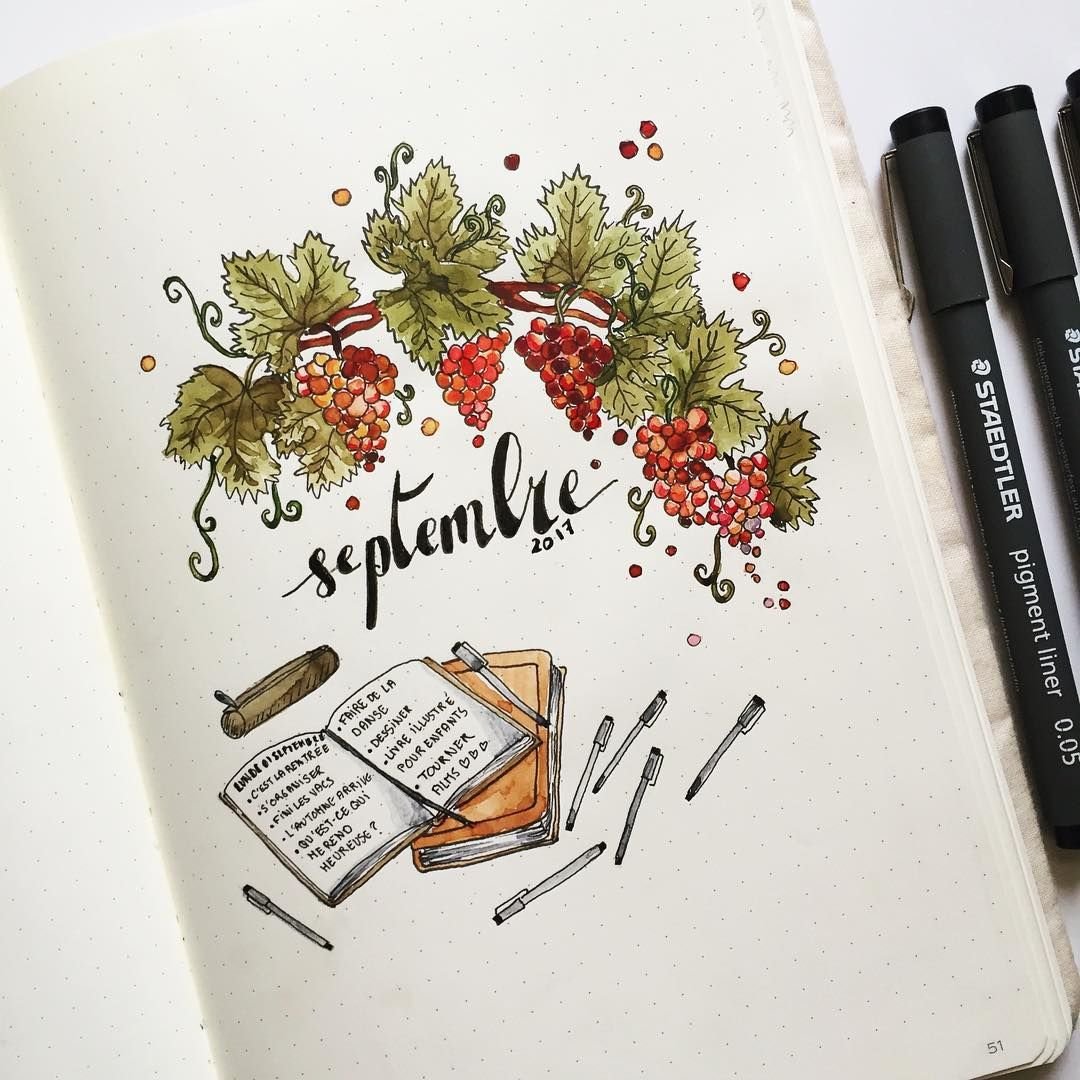 septembre
2017
LUNDI 01 SEPTEMBRE
• C'EST LA RENTRÉE
• S'ORGANISER
• FINI LES VACS
• L'AUTOMNE ARRIVE
• QU'EST-CE QUI
ME REND
HEUREUSE ?
• FAIRE DE LA
DANSE
• DESSINER
• LIVRE ILLUSTRÉ
POUR ENFANTS
• TOURNER
FILMS ♡♡♡
STAEDTLER
pigment liner 0.05
51